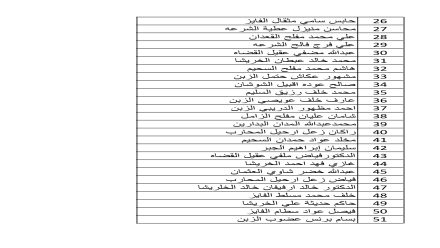 حابس سامي مثقال الفايز 26
محاسن منيزل عطية الشرعه 27
علي محمد مفلح الغعدان 28
علي فرج فالح الشرعه 29
عبدالله مصنفي عقيل القضاه 30
محمد خالد عبطان الخريشا 31
هاشم محمد مفلح السحيم 32
مشهور عكاش حتمل الزبن 33
صالح عوده اقبيل الشوشان 34
محمد خلف رزيق السليم 35
عارف خلف عويصي الزبن 36
احمد مطهور الدريبي الزبن 37
شامان عليان مفلح الزامل 38
محمدعبدالله المدان البدارين 39
راكان زعل ارحيل المحارب 40
مخلد عواد حمدان السحيم 41
سليمان ابراهيم الجبر 42
الدكتورفياض ملفي عقيل القضاه 43
غازي فهد احمد الخريشا 44
عبدالله خضر شاوي العثمان 45
فياض زعل ارحيل المحارب 46
الدكتور خالد ارفيفان خالد الخريشا 47
خلف محمد مسلط الفايز 48
حاكم حديثة علي الخريشا 49
فيصل عواد سطام الفايز 50
بسام برنس عضوب الزبن 51